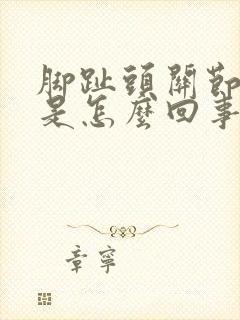 脚趾頭關節
是怎麼回事
章寧